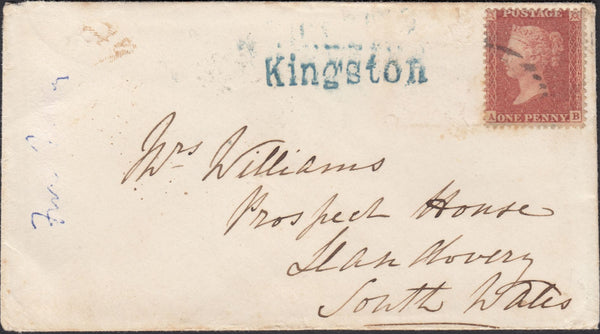 Kingston
POSTAGE
A ONE PENNY B
Mrs Williams
Prospect House
Llandovery
South Wales